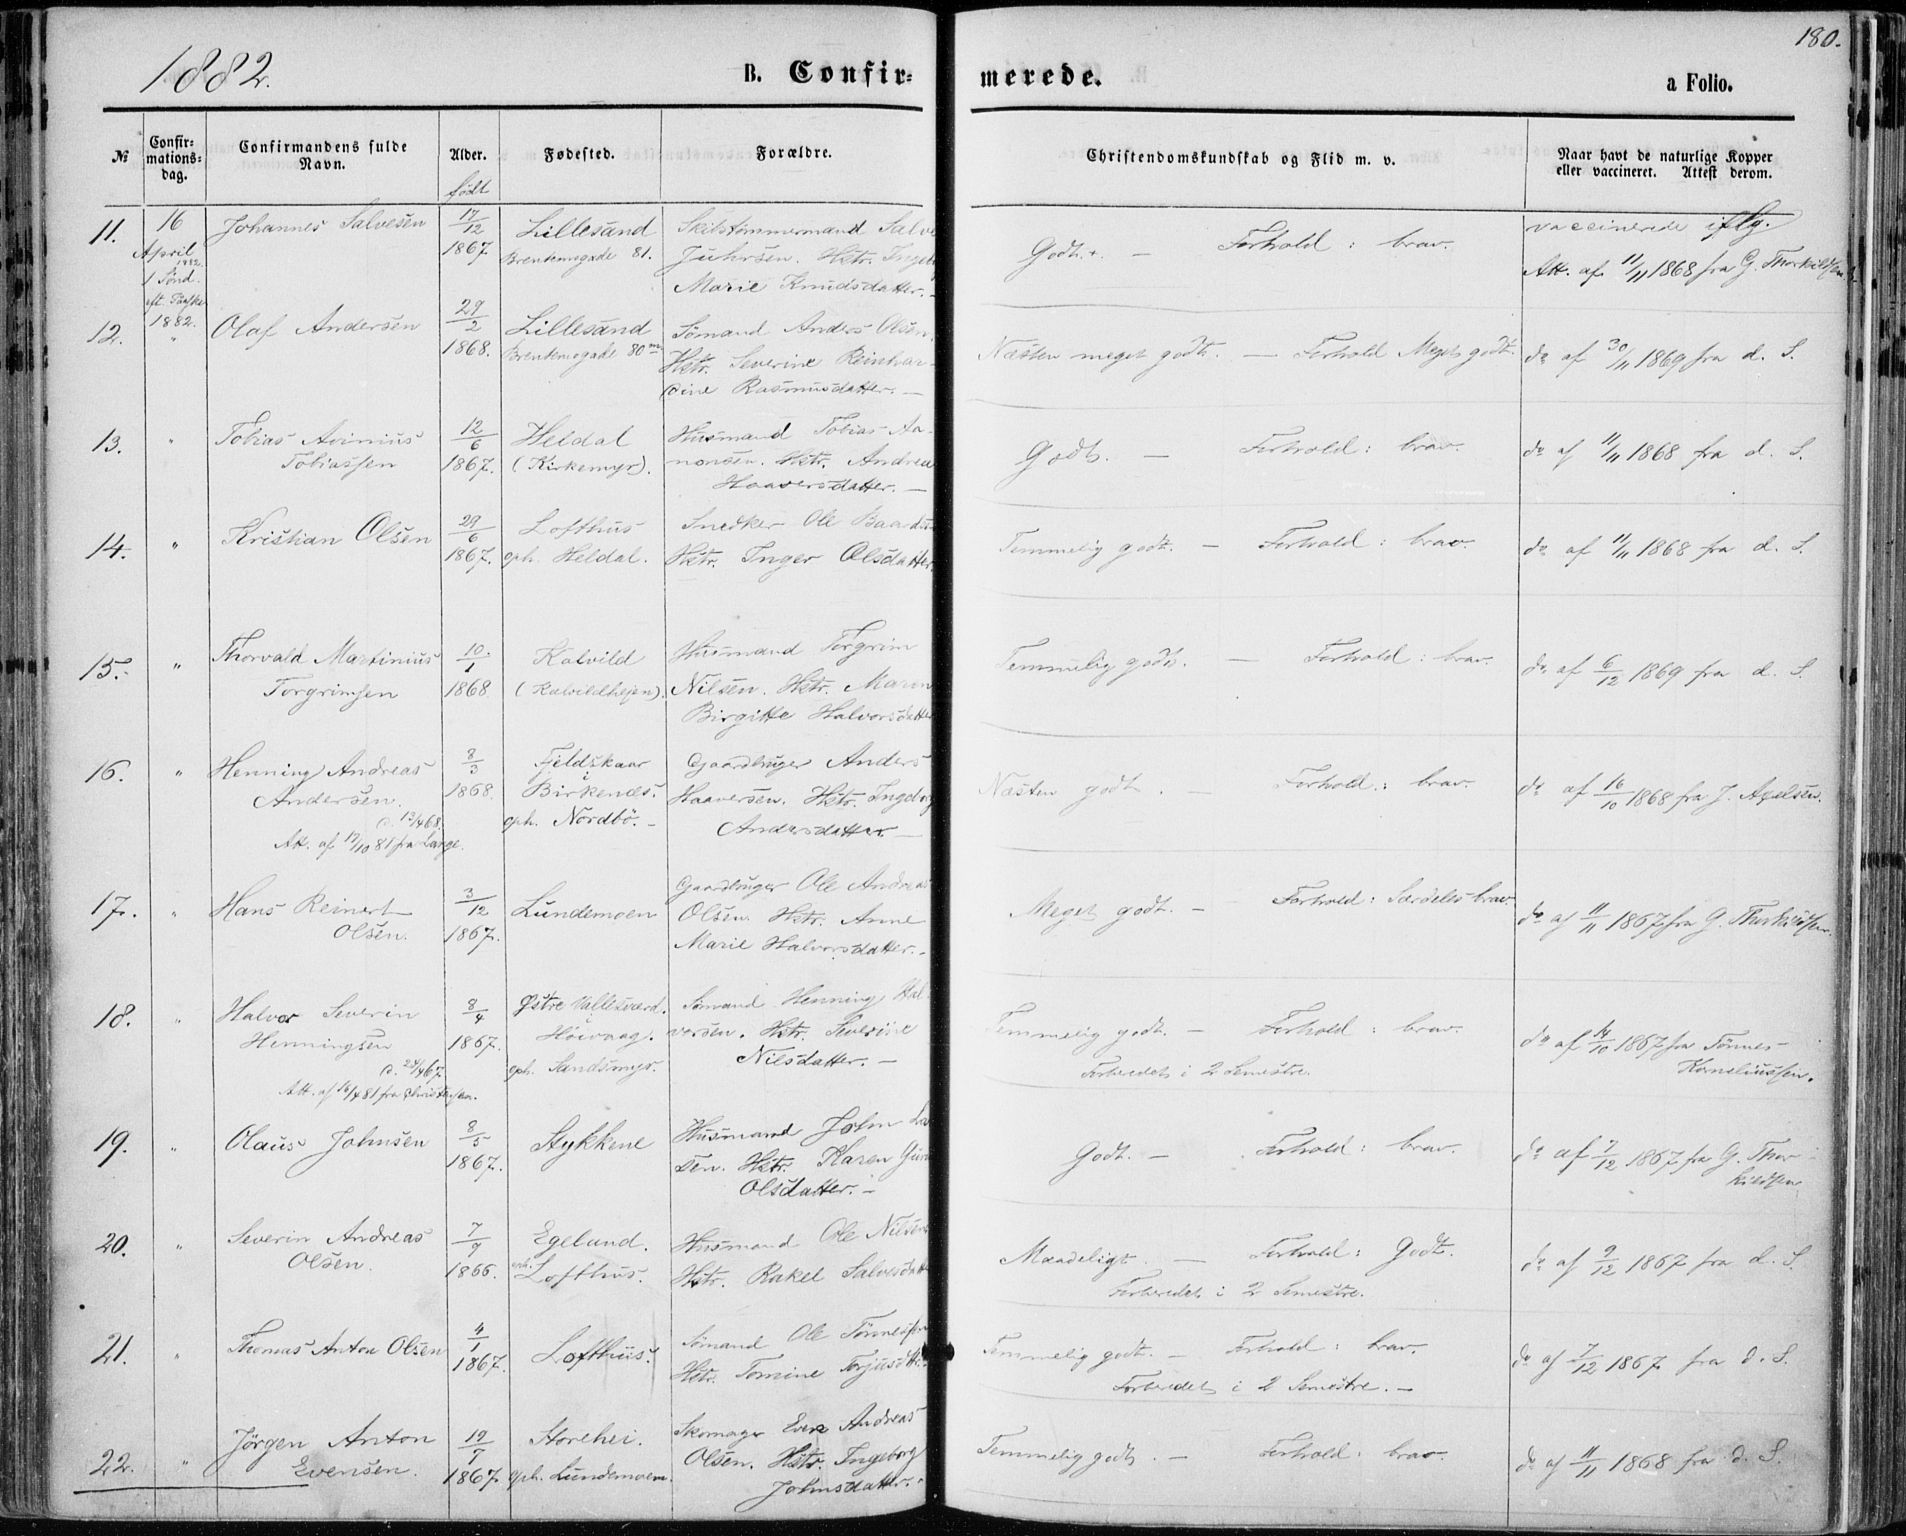 1882.
B. Confir-
merede.
180.
a Folio.
№
Confir-
mations-
dag.
Confirmandens fulde
Navn.
Alder.
født
Fødested.
Forældre.
Christendomskundskab og Flid m. v.
Naar havt de naturlige Kopper
eller vaccineret. Attest derom.
11.
16
April
1882.
1 Sønd.
eft. Paaske
1882.
Johannes Salvesen
17/12
1867
Lillesand
81.
Marie Knudsdatter. –
Godt. + –
Forhold : brav.
vaccinerede iflg.
Att. af 11/11 1868 fra G. Thorkildsen
12.
"
Olaf Andersen
29/2
1868.
Lillesand
80
Sömand Anders Olsen.
Hstr. Severine Reinhar-
dine Rasmusdatter. –
Næsten meget godt. – Forhold Meget godt.
do af 30/11 1869 fra d. S.
13.
"
Tobias Avinius
Tobiassen
12/6
1867.
Heldal
(Kirkemyr).
Husmand Tobias Aa-
nonsen. Hstr. Andrea
Haaversdatter. –
Godt. – Forhold : brav.
do af 11/11 1868 fra d. S.
14.
"
Kristian Olsen
29/6
1867.
Lofthus
oph. Heldal.
Snedker Ole
Hstr. Inger Olsdatter.
Temmelig godt. – Forhold : brav.
do af 11/11 1868 fra d. S.
15.
"
Thorvald Martinius
Torgrimsen
10/1
1868
Kalvild
(Kalvildhejen).
Husmand Torgrim
Nilsen. Hstr. Maren
Birgitte Halvorsdatter
Temmelig godt. – Forhold : brav.
do af 6/12 1869 fra d. S.
16.
"
Henning Andreas
Andersen.
D. 12/4 68.
Att. af 17/10 81 fra Lange.
8/3
1868.
Fjeldskaar
i
Birkenæs.
oph. Nordbö. –
Gaardbruger Anders
Haaversen. Hstr. Ingeborg
Andersdatter –
Næsten godt. – Forhold : brav.
do af 16/10 1868 fra J. Axelsen.
17.
"
Hans Reinert
Olsen.
3/12
1867.
Lundemoen
Gaardbruger Ole Andreas
Olsen. Hstr. Anne
Marie Halvorsdatter. –
Meget godt. – Forhold : Særdeles brav
do af 11/11 1867 fra G. Thorkildsen.
18.
"
Halvor Severin
Henningsen
D. 24/4 67.
Att. af 16/4 81 fra Christensen.
8/4
1867.
Østre Vallesværd.
Höivaag.
oph. Sandsmyr.
Sömand Henning Hal-
vorsen. Hstr. Severine
Nilsdatter. –
Temmelig godt. – Forhold : brav.
Forberedet i 2 Semestre.
do af 14/10 1867 fra Tönnes
Korneliussen.
19.
"
Olaus Johnsen
8/5
1867.
Stykkene
Husmand John
sen. Hstr. Karen
Olsdatter. –
Godt. – Forhold : brav.
do af 7/12 1867 fra G. Thor-
kildsen
20.
"
Severin Andreas
Olsen.
7/9
1866.
Egelund.
oph.
Lofthus.
Husmand Ole Nilsen
Hstr. Rakel Salvesdatter
Maadeligt. – Forhold : Godt.
Forberedet i 2 Semestre.
do af 9/12 1867 fra d. S.
21.
"
Thomas Anton Olsen
4/1
1867.
Lofthus.
Sömand Ole Tönnessen
Hstr. Tomine Torjusdtr.
Temmelig godt. – Forhold : brav.
Forberedet i 2 Semestre. –
do af 7/12 1867 fra d. S.
22.
"
Jörgen Anton
Evensen.
19/7
1867
Storehei.
oph. Lundemoen.
Skomager Even Andreas
Olsen. Hstr. Ingeborg
Johnsdatter. –
Temmelig godt. – Forhold : brav.
do af 11/11 1868 fra d. S.